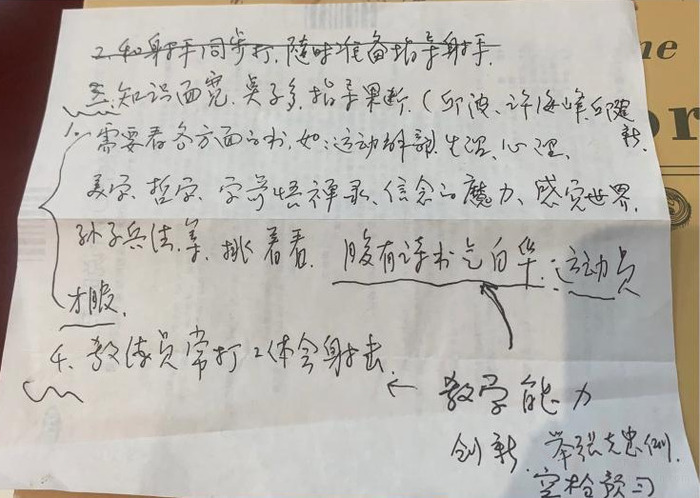 2. 和射手同步打,随时准备指导射手.
三.知识面宽.点子多.指导果断.(邱波、许海峰、邱健新.
1. 需要看各方面的书,如:运动解剖.生理、心理、
美学、哲学、字旁悟禅录、信念的魔力、感觉世界.
孙子兵法.等.挑着看. 腹有诗书气自华.运动员
才服.
4、教练员常打工体会射击.
← 教学能力
创新. 举张克忠例.
空枪预习
me
or